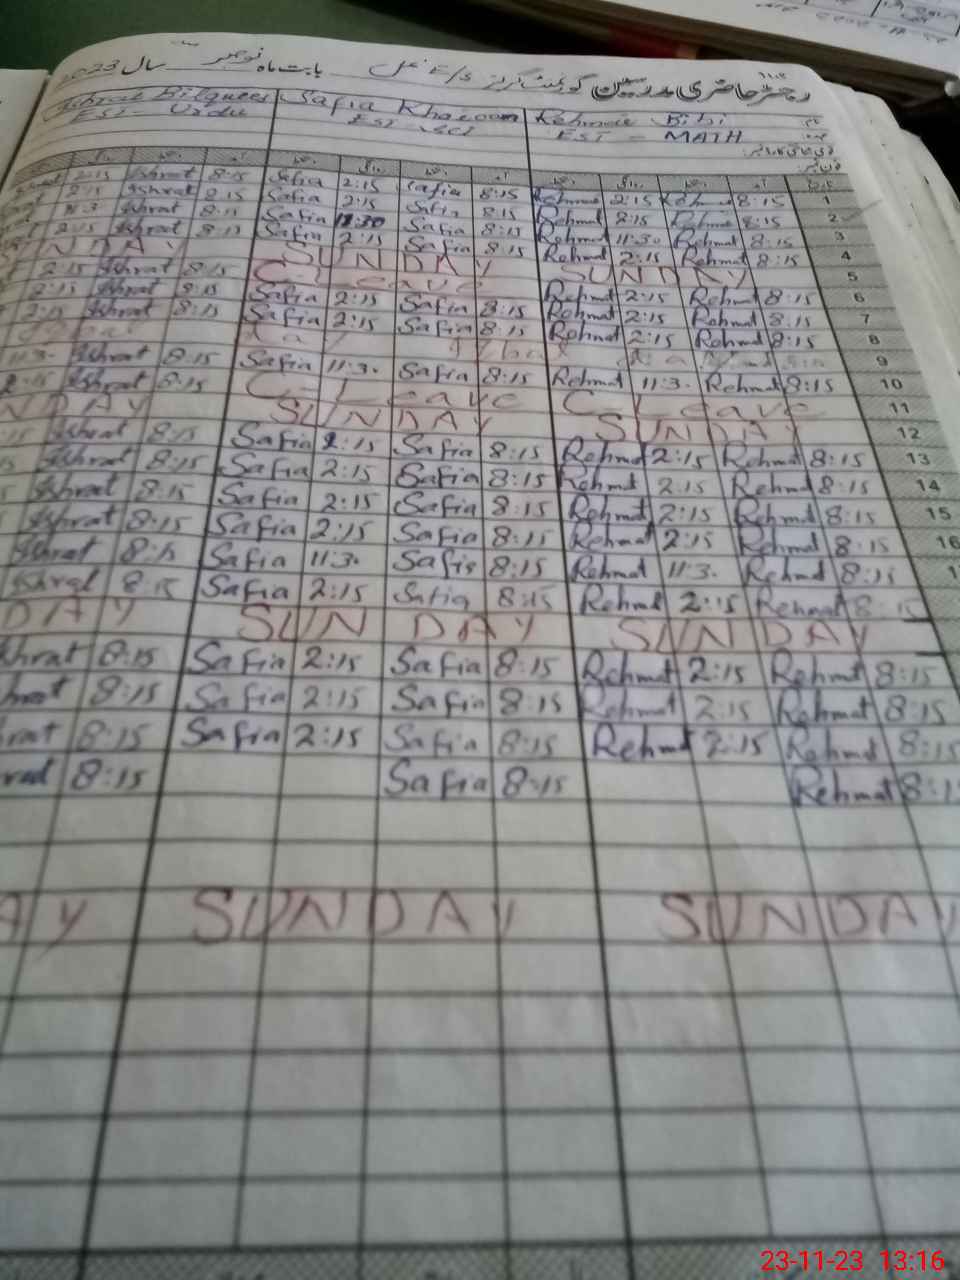 رجسٹر حاضری مدرسین گورنمنٹ گرلز E/S بابت ماہ نومبر سال 2023
Ishrat Bilquees Safia Khatoon Rehmat Bibi
EST - Urdu EST - SCI EST - MATH
2:15 Ishrat 8:15 Safia 2:15 Safia 8:15 Rehmat 2:15 Rehmat 8:15 1
2:15 Ishrat 8:15 Safia 2:15 Safia 8:15 Rehmat 8:15 Rehmat 8:15 2
11:3 Ishrat 8:15 Safia 11:30 Safia 8:15 Rehmat 11:30 Rehmat 8:15 3
2:15 Ishrat 8:15 Safia 2:15 Safia 8:15 Rehmat 2:15 Rehmat 8:15 4
NDAY SUNDAY SUNDAY 5
2:15 Ishrat 8:15 C-Leave Rehmat 2:15 Rehmat 8:15 6
2:15 Ishrat 8:15 Safia 2:15 Safia 8:15 Rehmat 2:15 Rehmat 8:15 7
2:15 Ishrat 8:15 Safia 2:15 Safia 8:15 Rehmat 2:15 Rehmat 8:15 8
9
11:3. Ishrat 8:15 Safia 11:3. Safia 8:15 Rehmat 11:3. Rehmat 8:15 10
2:15 Ishrat 8:15 C-Leave C-Leave 11
NDAY SUNDAY SUNDAY 12
:15 Ishrat 8:15 Safia 2:15 Safia 8:15 Rehmat 2:15 Rehmat 8:15 13
Ishrat 8:15 Safia 2:15 Safia 8:15 Rehmat 2:15 Rehmat 8:15 14
Ishrat 8:15 Safia 2:15 Safia 8:15 Rehmat 2:15 Rehmat 8:15 15
Ishrat 8:15 Safia 2:15 Safia 8:15 Rehmat 2:15 Rehmat 8:15 16
Ishrat 8:15 Safia 11:3. Safia 8:15 Rehmat 11:3. Rehmat 8:15 1
Ishrat 8:15 Safia 2:15 Safia 8:15 Rehmat 2:15 Rehmat 8:15
DAY SUNDAY SUNDAY
hrat 8:15 Safia 2:15 Safia 8:15 Rehmat 2:15 Rehmat 8:15
hrat 8:15 Safia 2:15 Safia 8:15 Rehmat 2:15 Rehmat 8:15
rat 8:15 Safia 2:15 Safia 8:15 Rehmat 2:15 Rehmat 8:15
rat 8:15 Safia 8:15 Rehmat 8:1
AY SUNDAY SUNDAY
23-11-23 13:16